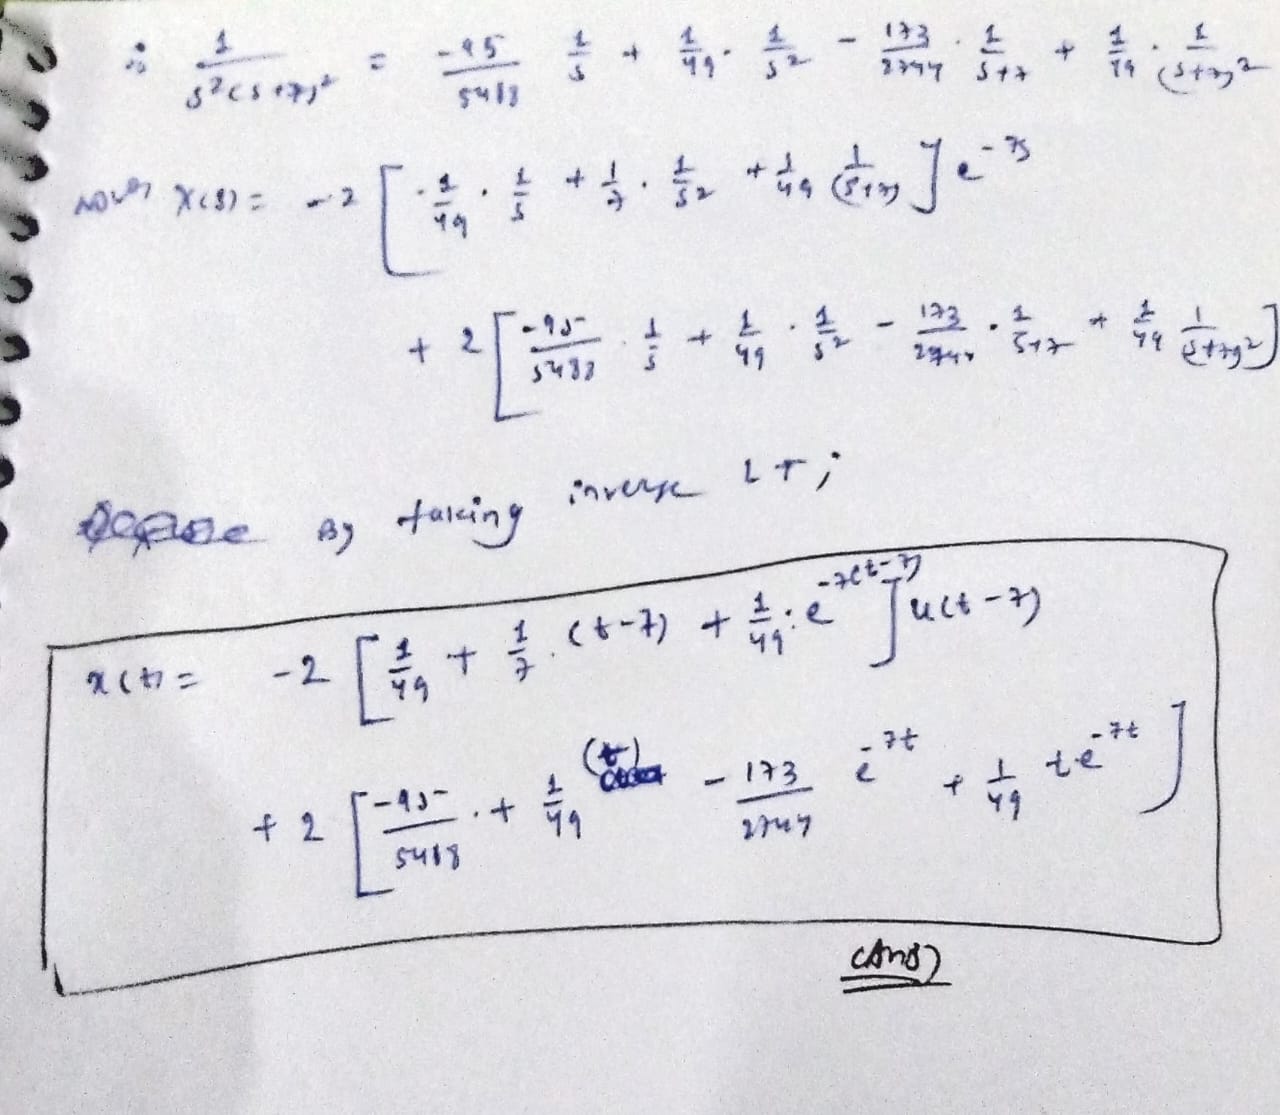 ∴ 1/(s²(s+7)²) = -95/5488 1/s + 1/49 · 1/s² - 173/2744 · 1/(s+7) + 1/49 · 1/(s+7)²
now X(s) = -2 [ 1/49 · 1/s + 1/7 · 1/s² + 1/49 1/(s+7) ] e^(-7s)
+ 2 [ -95/5488 · 1/s + 1/49 · 1/s² - 173/2744 · 1/(s+7) + 1/49 1/(s+7)² ]
By taking inverse LT;
x(t) = -2 [ 1/49 + 1/7 · (t-7) + 1/49 · e^(-7(t-7)) ] u(t-7)
+ 2 [ -95/5488 · + 1/49 (t) - 173/2744 e^(-7t) + 1/49 te^(-7t) ]
(Ans)